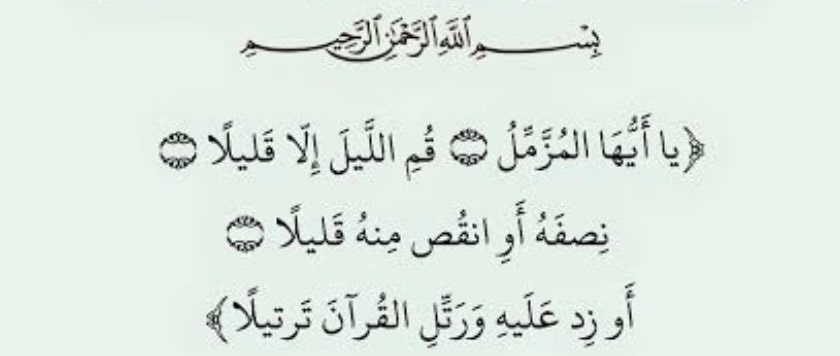 بِسْمِ اللَّهِ الرَّحْمَٰنِ الرَّحِيمِ
﴿يا أَيُّهَا المُزَّمِّلُ ۝ قُمِ اللَّيلَ إِلّا قَليلًا ۝
نِصفَهُ أَوِ انقُص مِنهُ قَليلًا ۝
أَو زِد عَلَيهِ وَرَتِّلِ القُرآنَ تَرتيلًا﴾